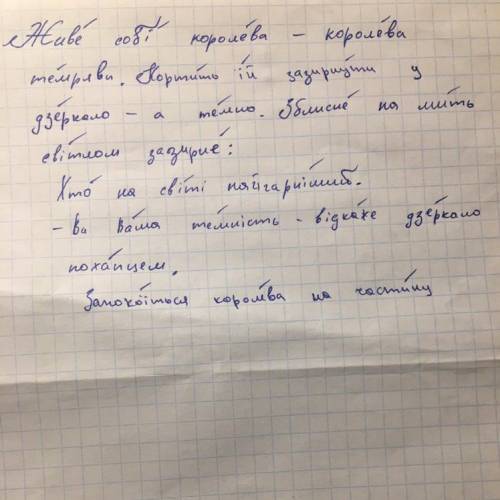 Живе́ собі́ короле́ва – короле́ва
те́мряви. Корти́ть їй зазирну́ти у
дзе́ркало – а те́мно. Зблисне́ на ми́ть
сві́тлом зазирне́:
Хто́ на сві́ті найгарні́ший.
– Ва Ва́ша те́мність – відка́же дзе́ркало
поха́пцем.
Запоко́їться короле́ва на части́ну